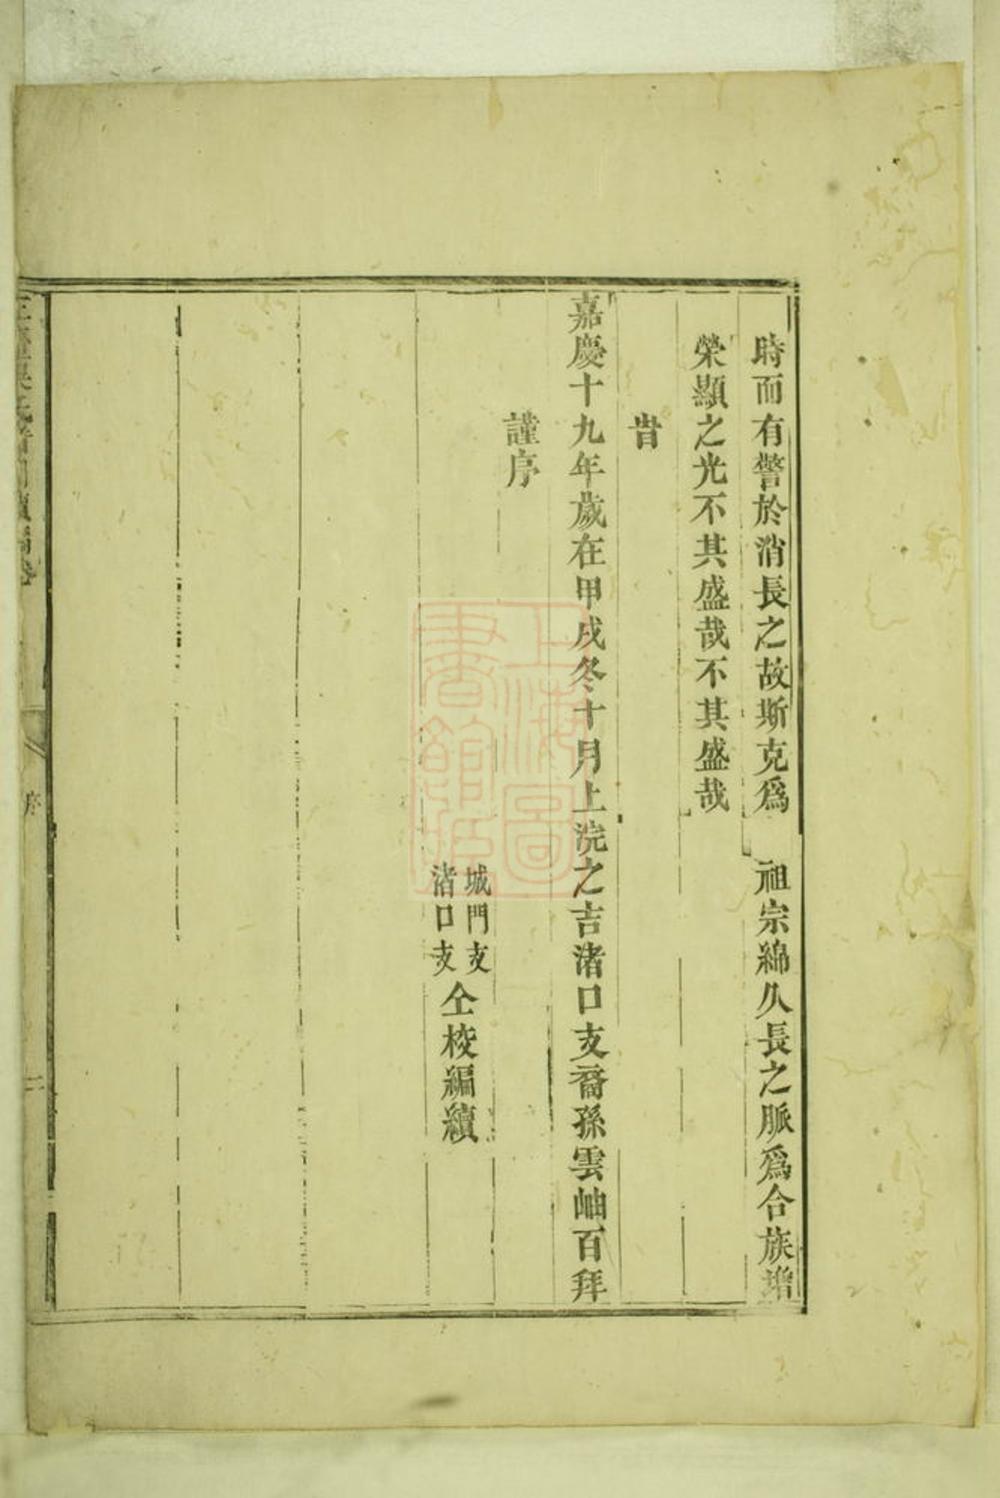 時而有警於消長之故斯克爲 祖宗綿久長之脈爲合族增
榮顯之光不其盛哉不其盛哉
旹
嘉慶十九年歲在甲戌冬十月上浣之吉渚口支裔孫雲岫百拜
謹序
城門支
渚口支
仝校編續
序
二
上海圖
書館藏